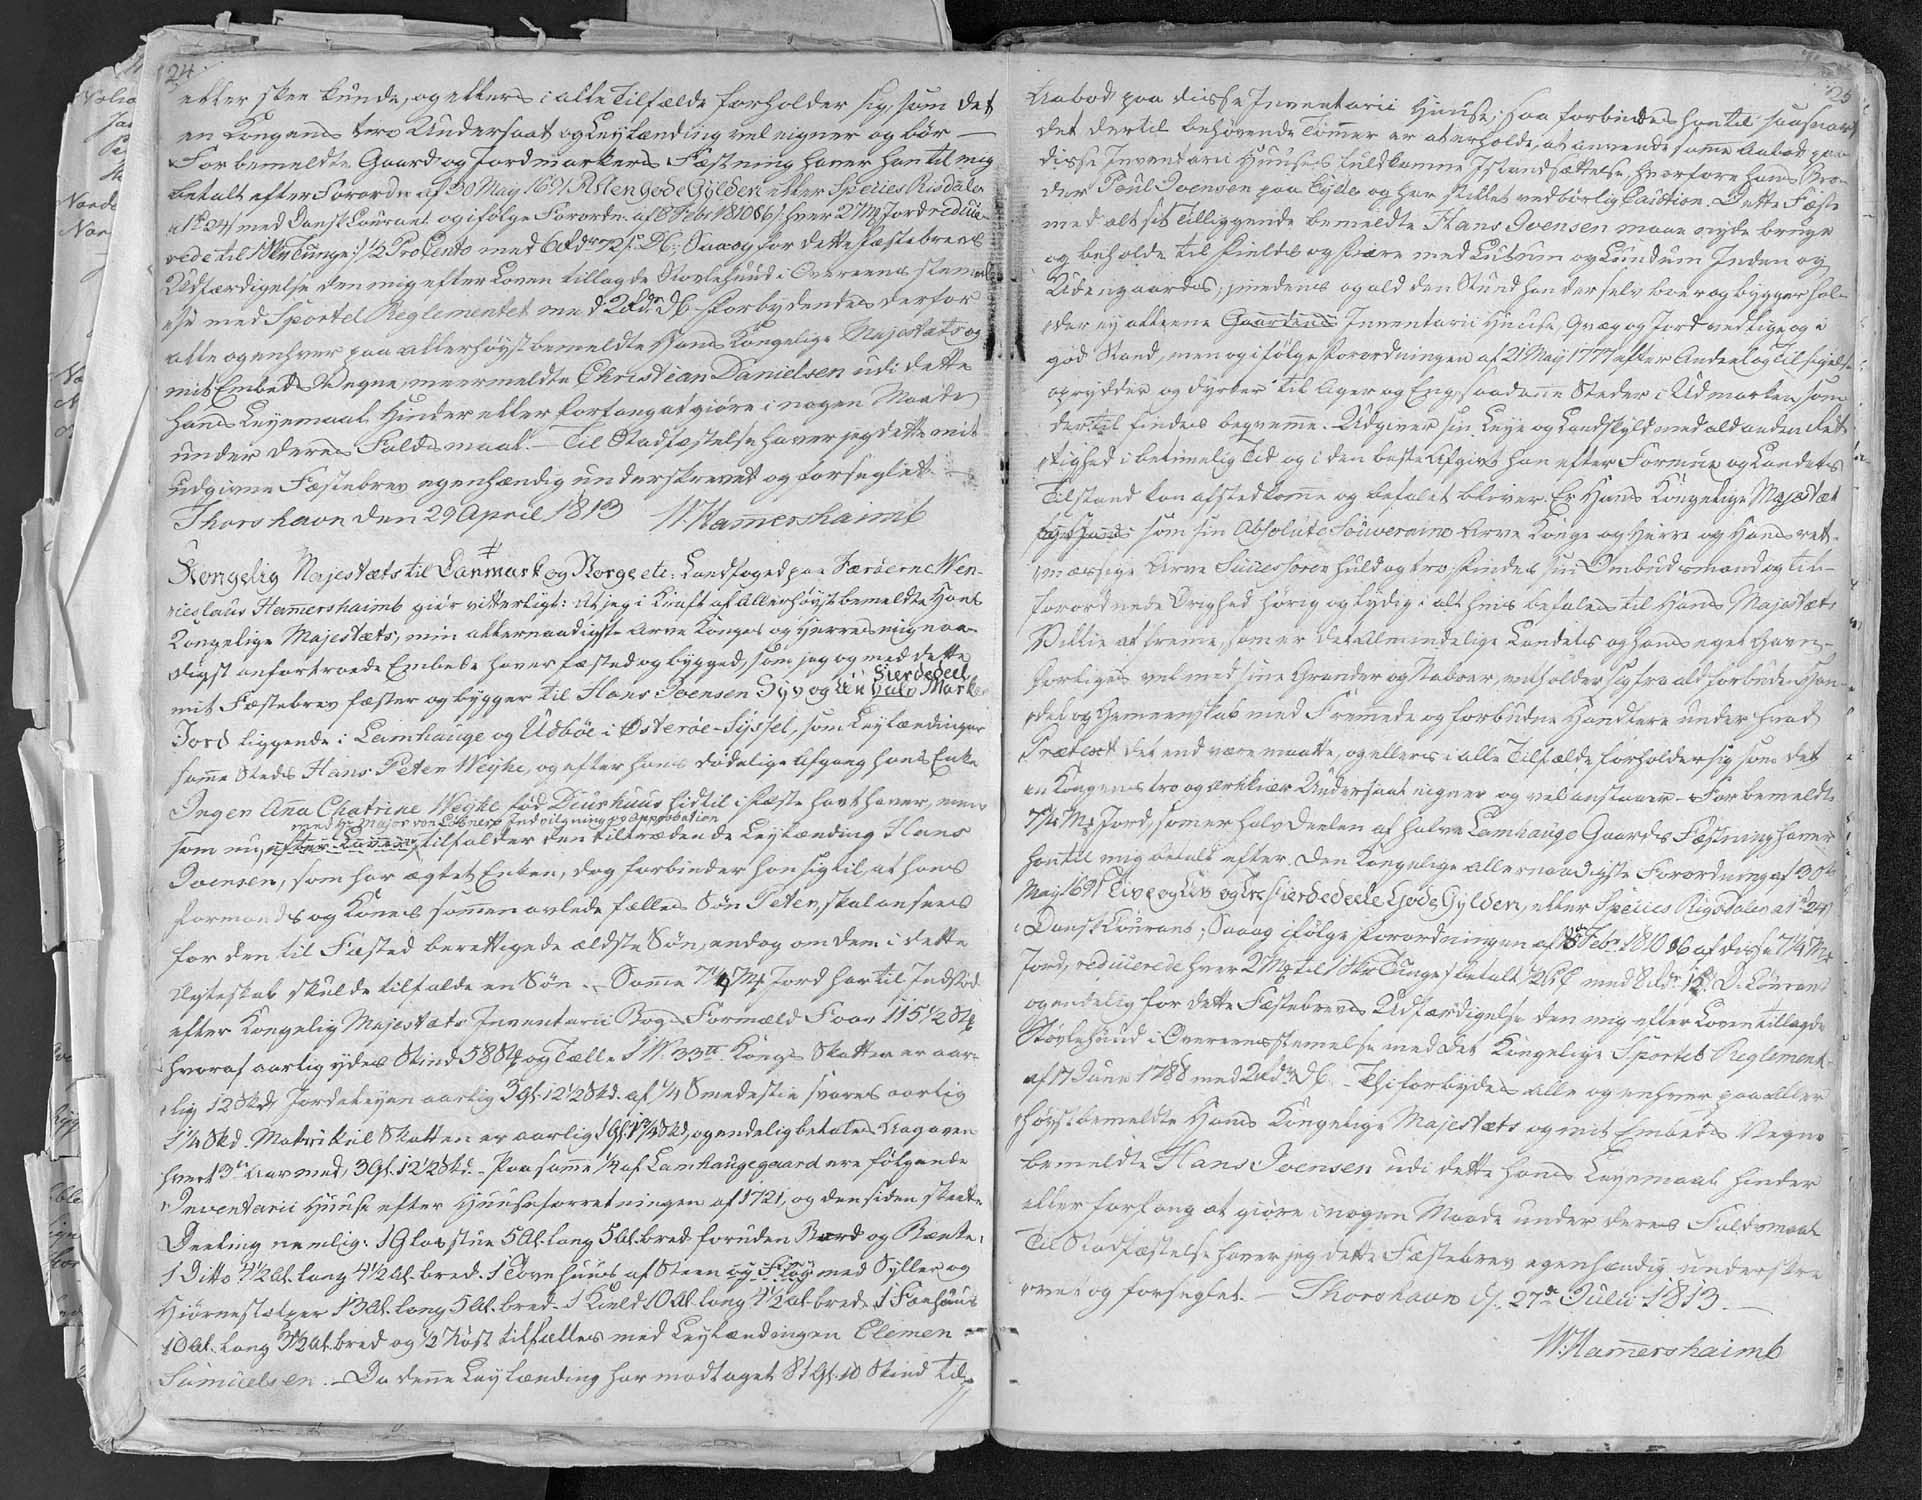 24
etter skee kunde, og ellers i alle Tilfælde forholder sig, som det
en Kongens troe Undersaat og Leylænding vel eigner og bør —
For bemeldte Gaard og Jordmarkers Fæstning haver han til mig
betalt efter Forordn: af 30 May 1691 gode Gylden eller Species Risdaler
a 1 24 med Dansk Courant og i følge Forordn: af 8 Febr 1810 hver 2 Mk Jord reduce
rede til 1 Tunge: 1/2 ProCento med 6 Rdr 72 s. DC: Saa og for dette Fæstebrevs
Udfærdigelse den mig efter Loven tillagde Støvlehuud i Overeens stemmel
se med Sportel Reglementet med 2 Rdr DC Forbydendes derfor
alle og enhver paa allerhøyst bemeldte Hans Kongelige Majestæts og
mit Embeds Vegne meermeldte Christian Danielsen udi dette
hans Leyemaal Hinder eller Forfang at giöre i nogen Maade
under deres Falds maal. — Til Stadfæstelse haver jeg dette mit
udgivne Fæstebrev egenhændig underskrevet og forseglet. —
Thorshavn den 29 April 1813 W. Hamershaimb
Kongelig Majestæts til Danmark og Norge etc: Landfoged paa Færöerne Wen-
ceslaus Hamershaimb giör vitterligt: At jeg i Kraft af Allerhöyst bemeldte Hans
Kongelige Majestæts, min allernaadigste Arve Konges og Herres mig naa-
digst anfortroede Embede haver fæsted og bygged, som jeg og med dette
Fierdedeel
mit Fæstebrev fæster og bygger til Hans Joensen Syv og Een halv Marker
Jord liggende i Lamhauge og Udböe i Österöe-Syssel, som Leylændingen
samme Steds Hans Peter Weyhe, og efter hans dödelige Afgang hans Enke
Ingen Anna Chatrine Weyhe fød Diurhuus hidtil i Fæste havt haver, men
med Hr Major von Löbners Indvilgning og approbation
som nu, efter Loven, tilfalder den tiltrædende Leylænding Hans
Joensen, som har ægtet Enken, dog forbinder han sig til, at hans
Formands og Kones sammenavlede fælles Søn Peter, skal ansees
for den til Fæsted berettigede ældste Søn, endog om dem i dette
Ægteskab skulde tilfalde en Søn. — Samme 7 1/4 Mk Jord har til Indstød
efter Kongelig Majestæts Inventarii Bogs Formæld Faar 115 1/2 Stk
hvoraf aarlig ydes Skind 58 Stk og Tælle 1 W: 33 tt. Kongs Skatten er aar-
lig 12 Skd Jordeleyen aarlig 3 Gl: 12 1/2 Skd. af 1/4 Smedestie svares aarlig
1 1/4 Skd. Matrikul Skatten er aarlig 1 Gl: Skd, og endelig betales Kagaven
hvert 3de Aar med 3 Gl. 12 1/2 Skd. — Paa samme 1/4 af Lamhaugegaard ere følgende
Inventarii Huuse efter Huuseforretningen af 1721, og den siden skeete
Deeling nemlig: 1 Glasstue 5 Al. lang 5 Al. bred foruden Bord og Bænke,
1 Ditto 4 1/2 Al. lang 4 1/2 Al. bred. 1 Lovehuus af Steen og Fløy med Syller og
Hiörnestolper 13 Al. lang 5 Al. bred. 1 Kield 10 Al. lang 4 1/2 al. bred. 1 Faehuus
10 al. lang 3 1/2 al. bred og 1/2 Nöst tilfælles med Leylændingen Clemen
Samuelsen. — Da denne Leylænding har modtaget 81 Gl. 10 Skind til
25
Aabod paa disse Inventarii Huuse; saa forbindes han til saasnart
det dertil behøvende Tømmer er at erholde, at anvende samme Aabod paa
disse Inventarii Huuses fuldkomne Istandsættelse, hvorfore hans Bro-
der Poul Joensen paa Gylle og har stillet vedbörlig Caution. Dette Fæste
med alt sit tilliggende bemeldte Hans Joensen maae nyde bruge
og beholde til Fields og Fiære med Lutum og Lundum Inden og
Uden gaards; imedens og ald den Stund han der selv boer og bygger hol-
der ej alleene Gaardens Inventarii Huuse, Qvæg og Jord ved lige og i
god Stand, men og i følge Forordningen af 21 May 1777 efter Andeel og Tilfigelse
oprydder og dyrker til Ager og Eng saadanne Steder i Udmarken som
dertil findes beqvemme. Udgiver sin Leye og Landskyld med ald anden Ret
tighed i betimelig Tid og i den beste Afgivt han efter Formue og Landets
Tilstand kan afstedkomme og befalet bliver. Er Hans Kongelige Majestæt
som sin Absolute Souveraine Arve Konge og Herre og Hans ret-
mæssige Arve Successorer huld og troe, findes sin Ombudsmand og til-
forordnede Øvrighed hörig og lydig i alt hvis befales til Hans Majestæts
Villie at fremme, som er det allmindelige Landets og hans eget Gavn,
forliges vel med sine Grander og Naboer, entholder sig fra ald forbuden Han-
del og Gemeenskab med Fremmede og forbudne Handlere under hvad
Prætext det end være maatte, og ellers i alle Tilfælde forholder sig som det
en Kongens tro og Undersaat eigner og vel anstaaer. For bemeldte
7 1/4 Mk Jord, som er halv Deelen af halve Lamhauge Gaards Fæstning haver
han til mig betalt efter den Kongelige allernaadigste Forordning af 30te
May 1691 Tive og tre fierdedeele Gode Gylden, eller Species Rigsdaler a 24
Dansk Courant; Saa og i følge Forordningen af 8de Febr. 1810 af disse 7 1/4 Mk
Jord, reducerede hver 2 Mk til 1 Tunge betalt med 8 Rdr 15 s. D. Courant
og endelig for dette Fæstebrevs Udfærdigelse den mig efter Loven tillagde
Støvlehuud i Overeensstemmelse med det Kongelige Sportel Reglement
af 17 Juni 1788 med 2 Rdr DC. — Thi forbydes alle og enhver paa aller
höyst bemeldte Hans Kongelige Majestæts og mit Embeds Vegne
bemeldte Hans Joensen udi dette hans Leyemaal hinder
eller forfang at giøre i nogen Maade under deres Faldsmaal
Til Stadfæstelse haver jeg dette Fæstebrev egenhændig underskre
vet og forseglet. — Thorshavn d. 27de Julii 1813. —
W. Hamershaimb